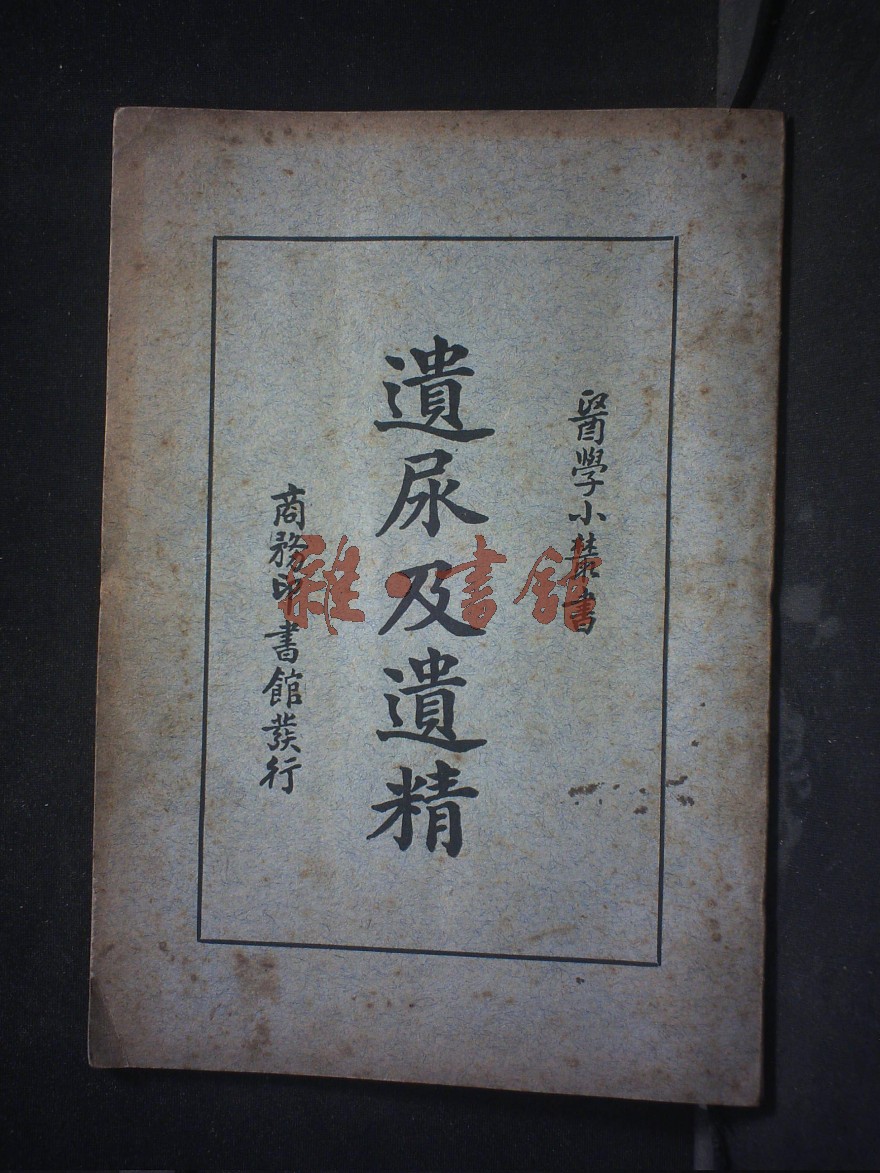 醫學小叢書
遺尿及遺精
商務印書館發行
雜·書館